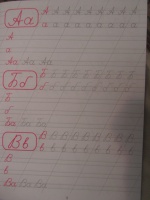 Аа А А А А А А А А А
а а а а а а а а а
А
а
Аа Аа Аа
Бб Б Б Б Б Б Б Б Б Б
б б б б б б б б б
Б
б
Ба Ба Ба
Вв В В В В В В В В В
в в в в в в в в в
В
в
Ва Ва Ва